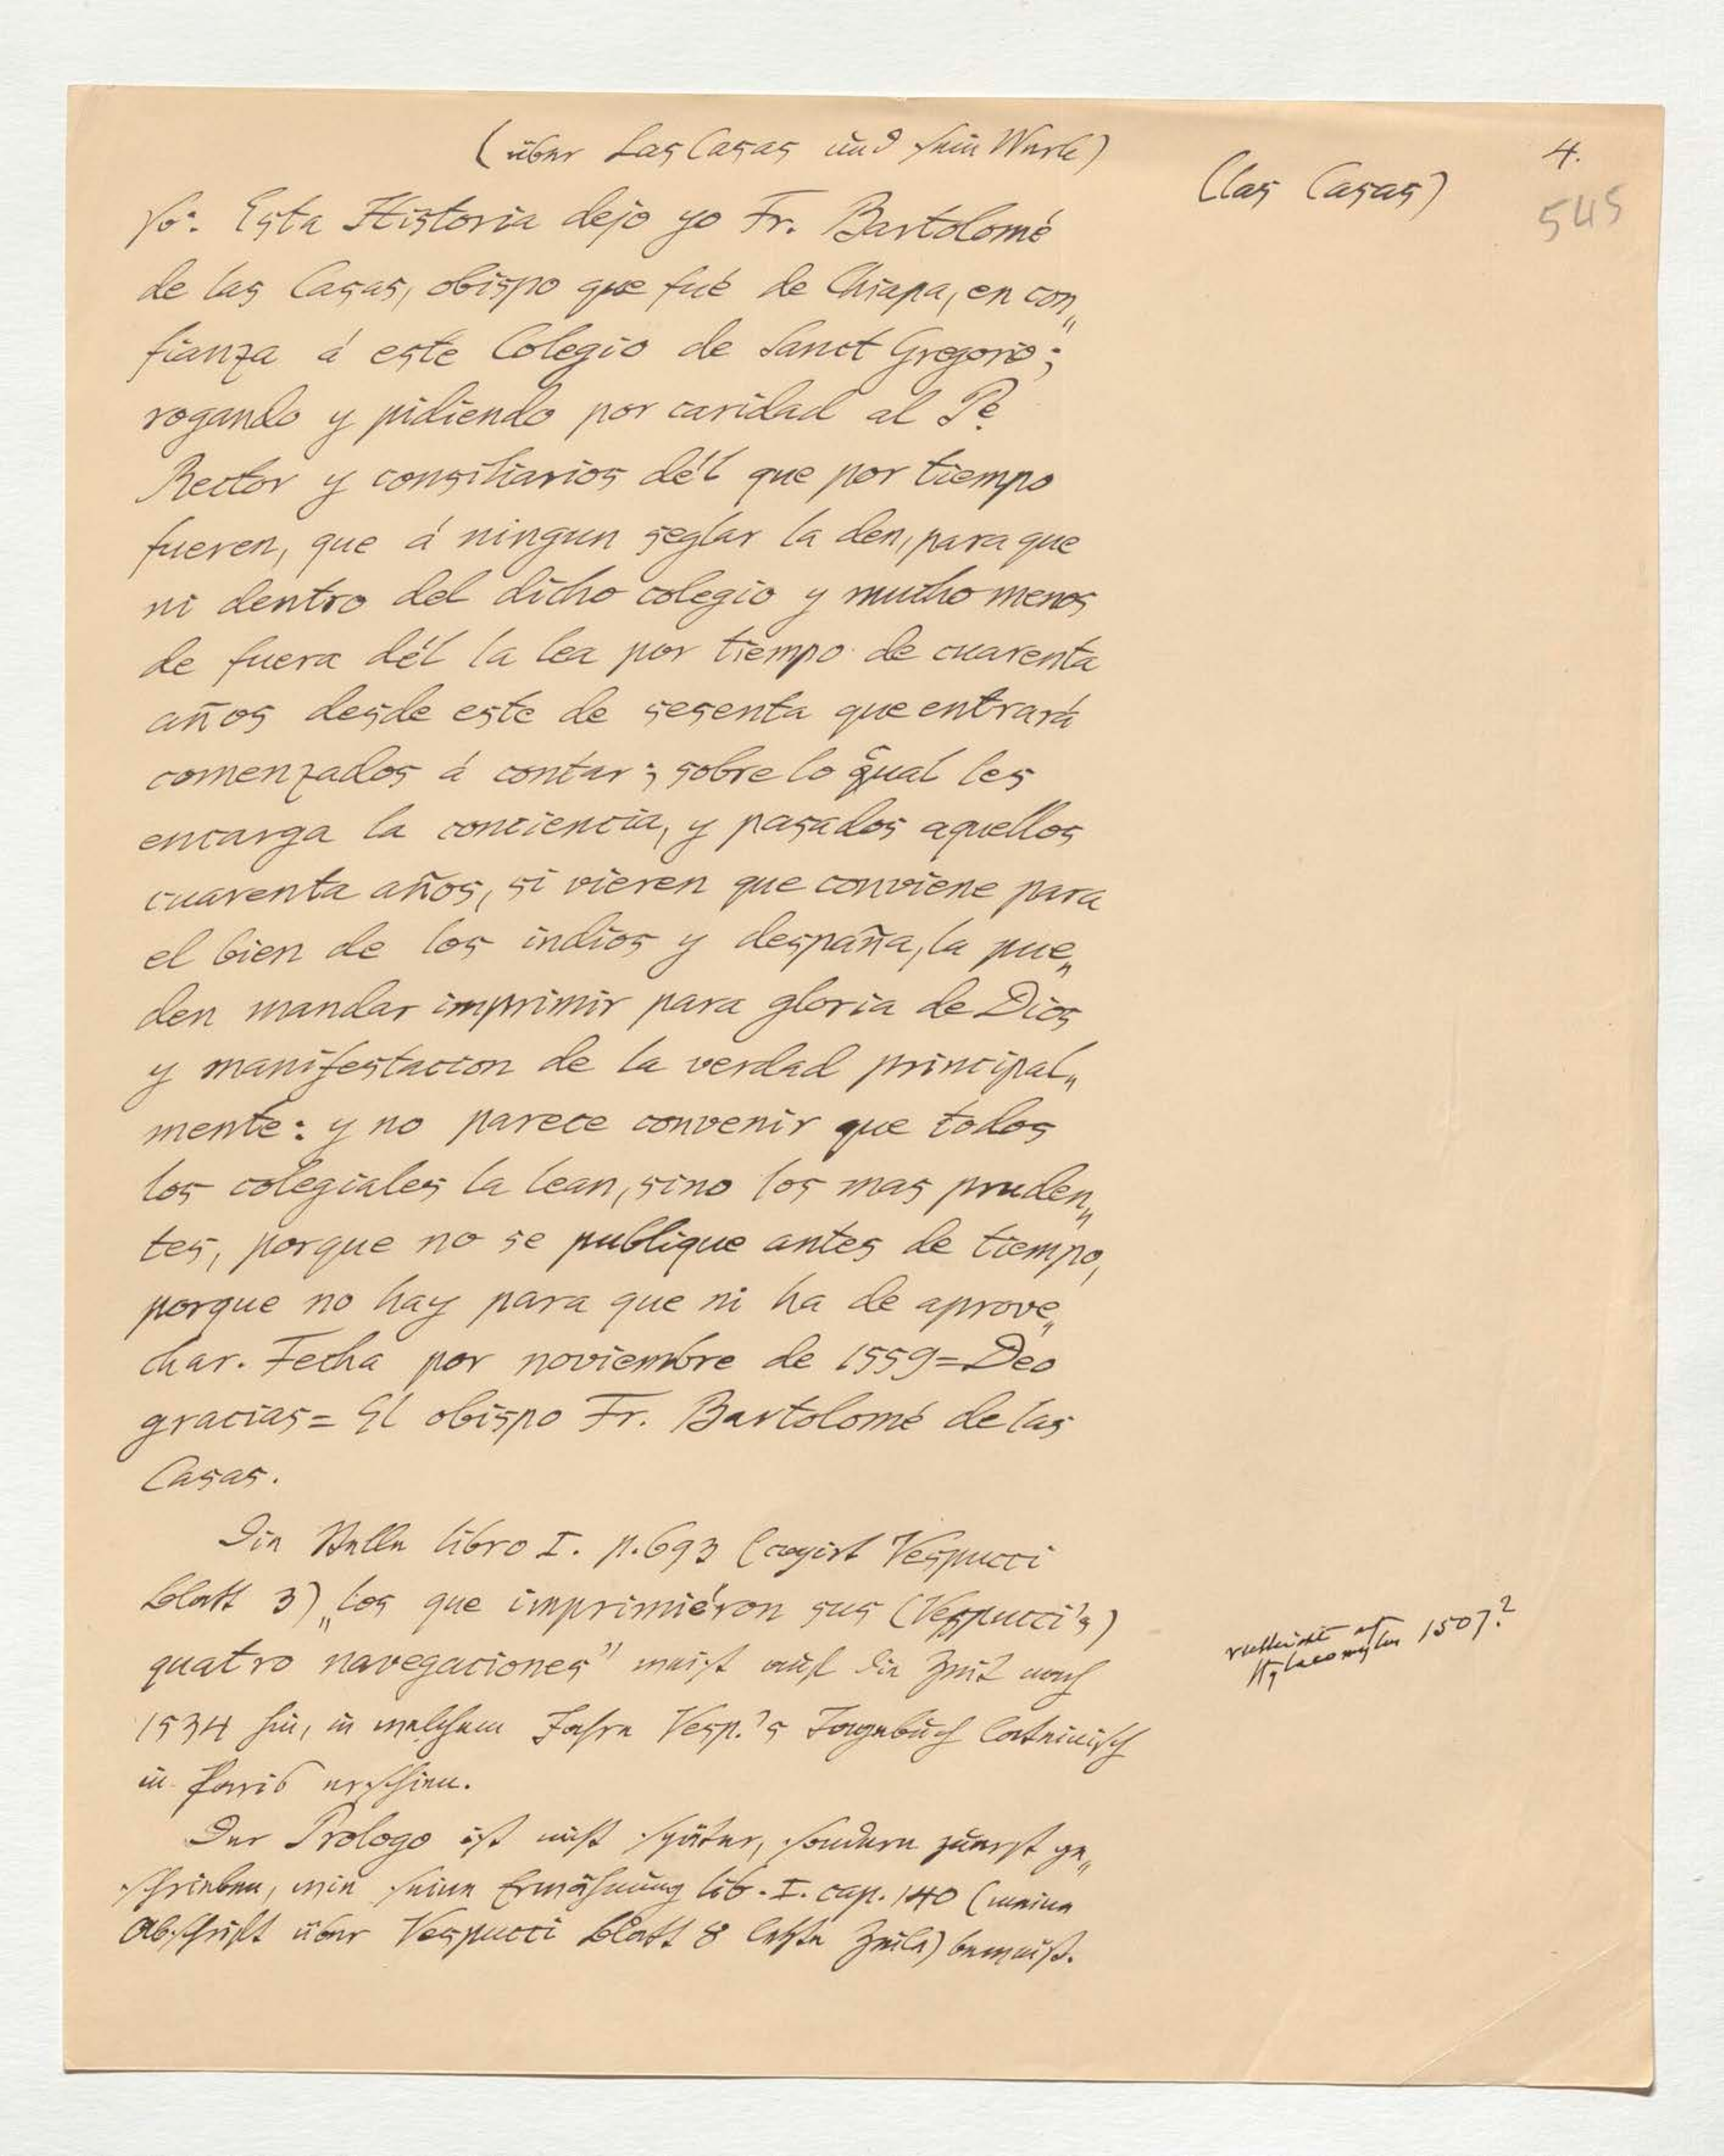 (über Las Casas und sein Werk)
(las Casas)
4.
545
so: Esta Historia dejo yo Fr. Bartolomé
de las Casas, obispo que fué de Chiapa, en con„
fianza á este Colegio de Sanct Gregorio;
rogando y pidiendo por caridad al Pe
Rector y consiliarios dél que por tiempo
fueren, que á ningun seglar la den, para que
ni dentro del dicho colegio y mucho menos
de fuera dél la lea por tiempo de cuarenta
años desde este de sesenta que entrará
comenzados á contar; sobre lo qual les
encarga la conciencia, y pasados aquellos
cuarenta años, si vieren que conviene para
el bien de los indios y despaña, la pue„
den mandar imprimir para gloria de Dios
y manifestacion de la verdad principal„
mente: y no parece convenir que todos
los colegiales la lean, sino los mas pruden„
tes, porque no se publique antes de tiempo,
porque no hay para que ni ha de aprove„
char. Fecha por noviembre de 1559=Deo
gracias= El obispo Fr. Bartolomé de las
Casas.
Die Stelle libro I. p.693 (copirt Vespucci
Blatt 3) „los que imprimiéron sus (Vespucci's)
quatro navegaciones" weist auf die Zeit nach
1534 hin, in welchem Jahre Vesp.'s Tagebuch lateinisch
in Paris erschien.
vielleicht auf
Hylacomylus 1507?
Der Prologo ist nicht später, sondern zuerst ge„
schrieben, wie seine Erwähnung lib. I. cap. 140 (meine
Abschrift über Vespucci Blatt 8 letzte Zeile) beweist.